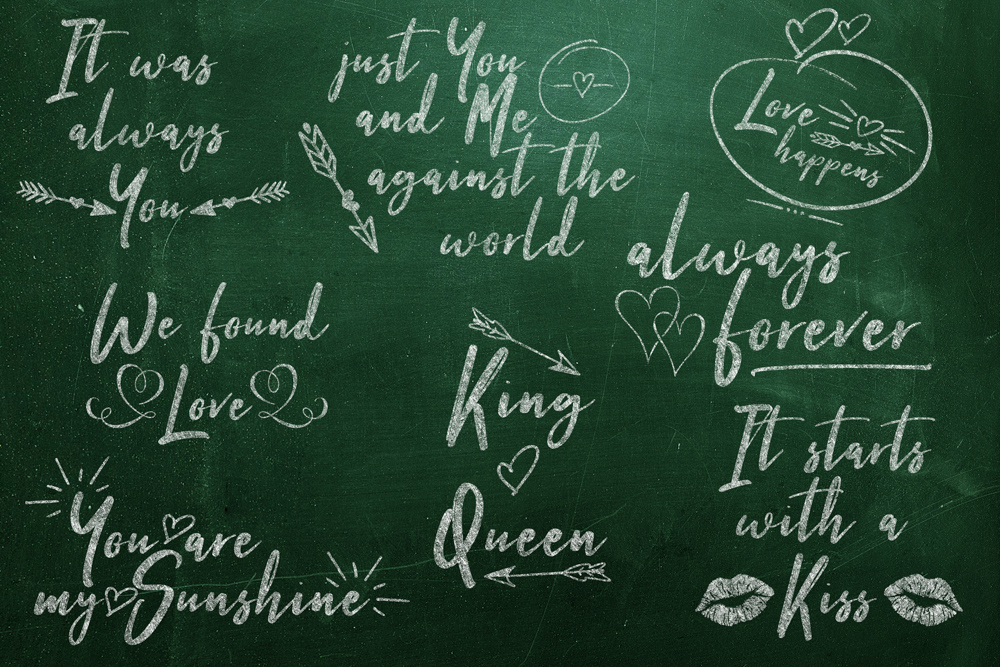 It was
always
You
just You
and Me
against the
world
Love
happens
always
forever
We found
Love
King
Queen
It starts
with a
Kiss
You are
my Sunshine